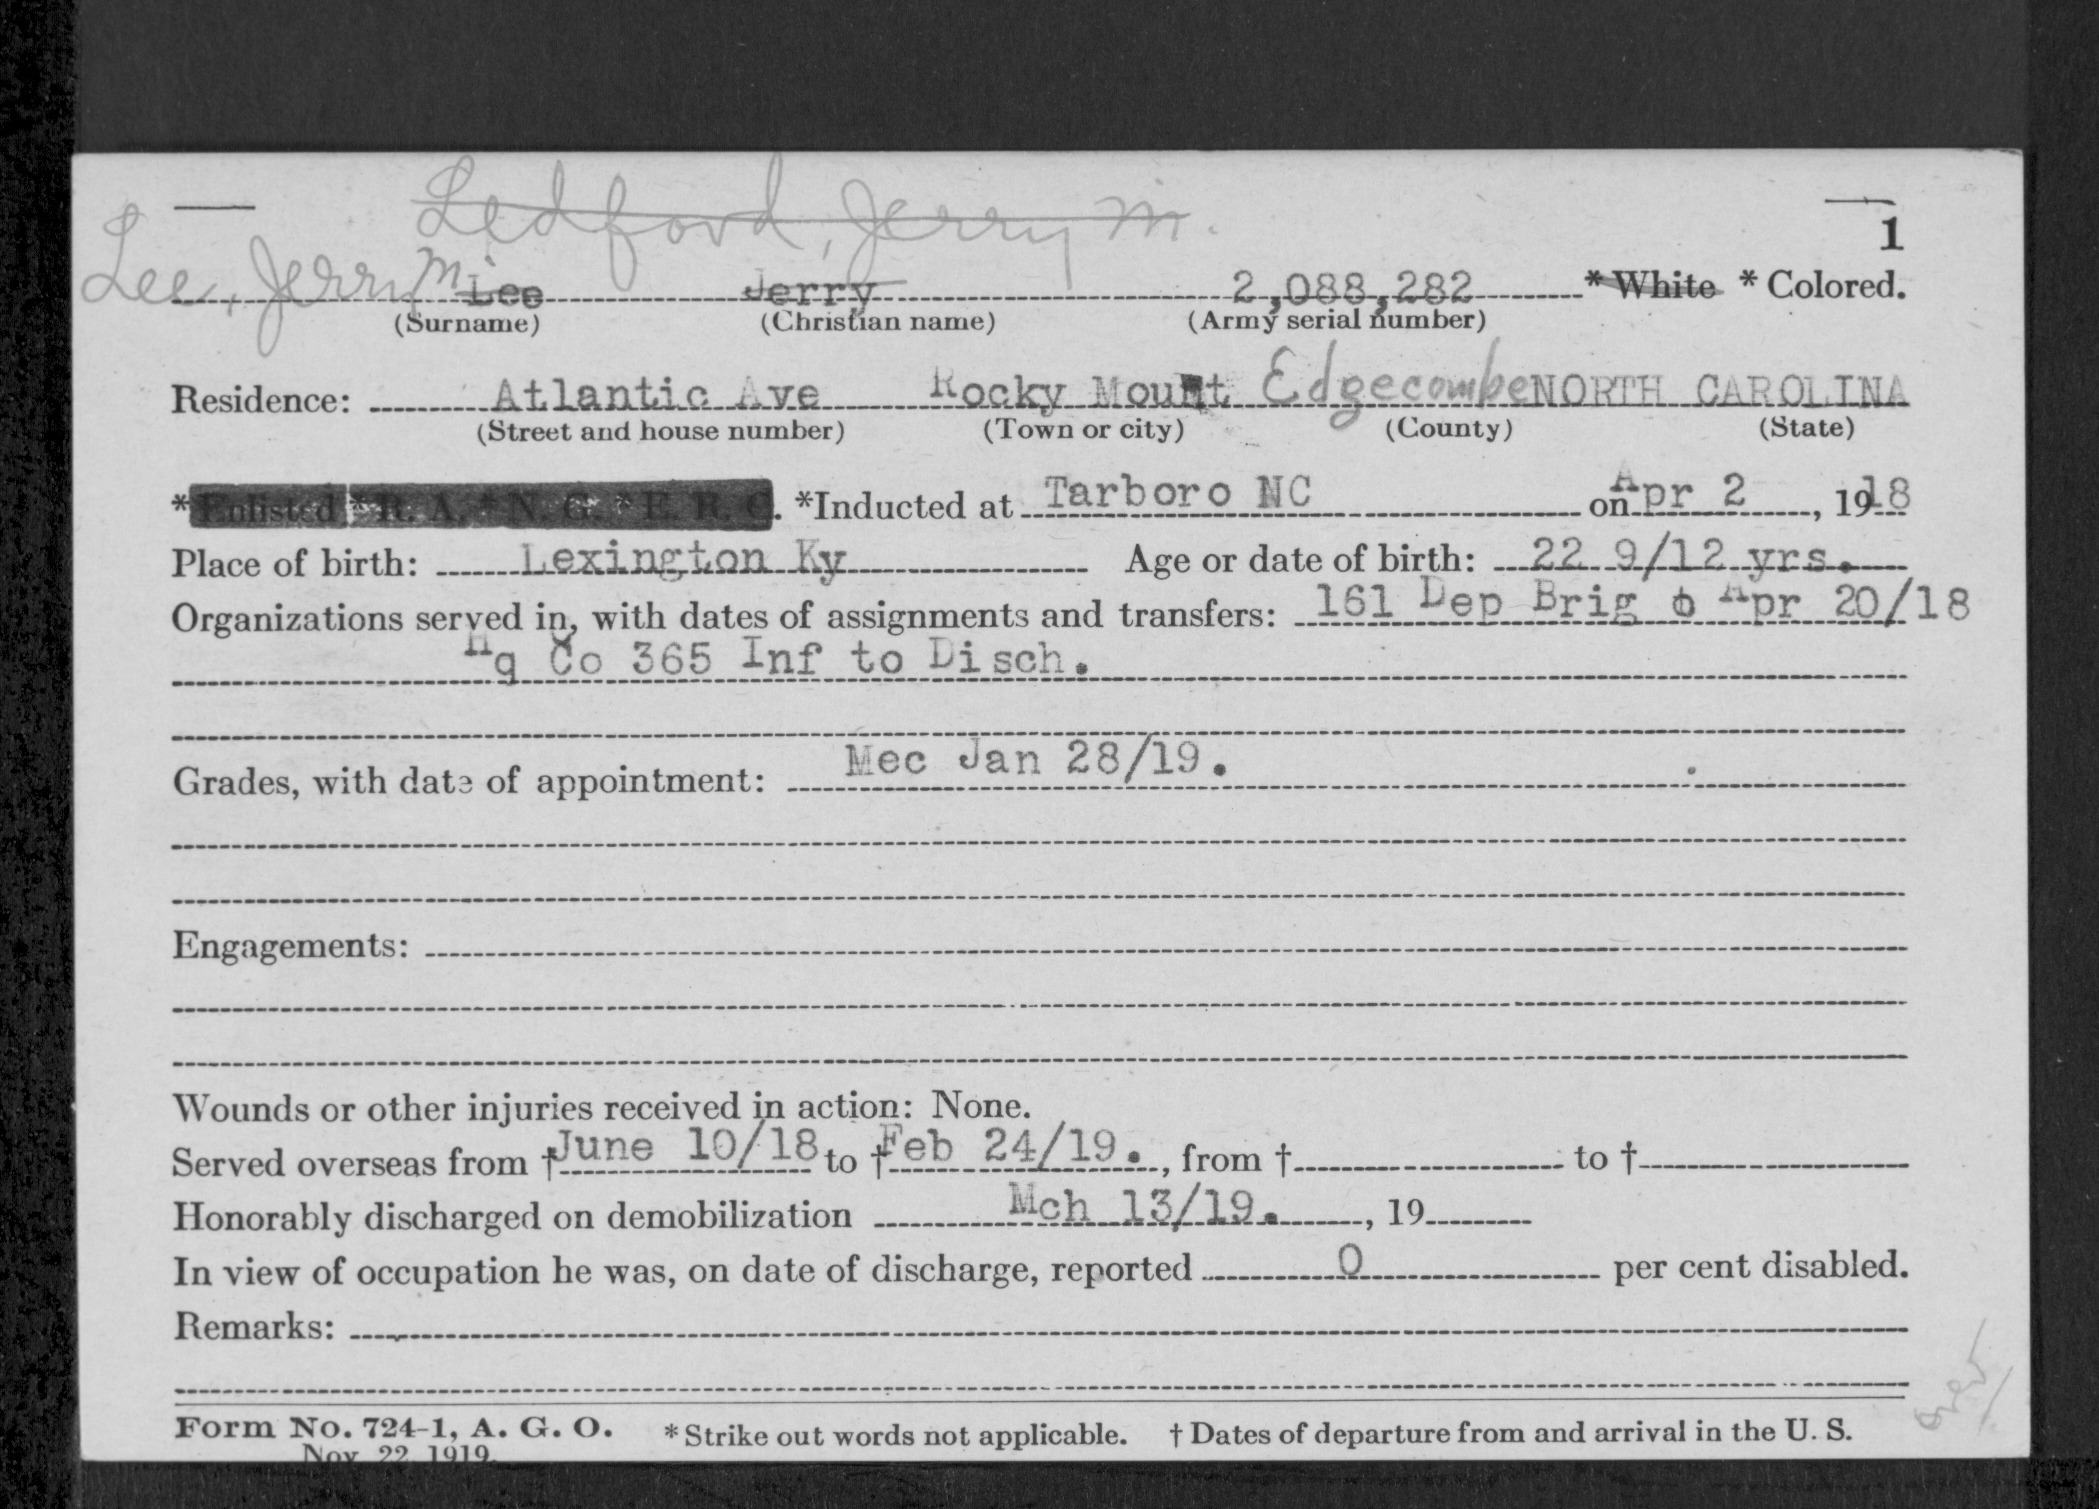 Ledford, Jerry M.
1
Lee, Jerry M Lee Jerry 2,088,282 * White * Colored.
(Surname) (Christian name) (Army serial number)
Residence: Atlantic Ave Rocky Mount Edgecombe NORTH CAROLINA
(Street and house number) (Town or city) (County) (State)
* Enlisted * R. A. * N. G. * E. R. C. *Inducted at Tarboro NC on Apr 2, 1918
Place of birth: Lexington Ky Age or date of birth: 22 9/12 yrs.
Organizations served in, with dates of assignments and transfers: 161 Dep Brig to Apr 20/18
Hq Co 365 Inf to Disch.
Grades, with date of appointment: Mec Jan 28/19.
Engagements:
Wounds or other injuries received in action: None.
Served overseas from † June 10/18 to † Feb 24/19., from † to †
Honorably discharged on demobilization Mch 13/19., 19
In view of occupation he was, on date of discharge, reported 0 per cent disabled.
Remarks:
Form No. 724-1, A. G. O. * Strike out words not applicable. † Dates of departure from and arrival in the U. S.
Nov. 22, 1919.
over